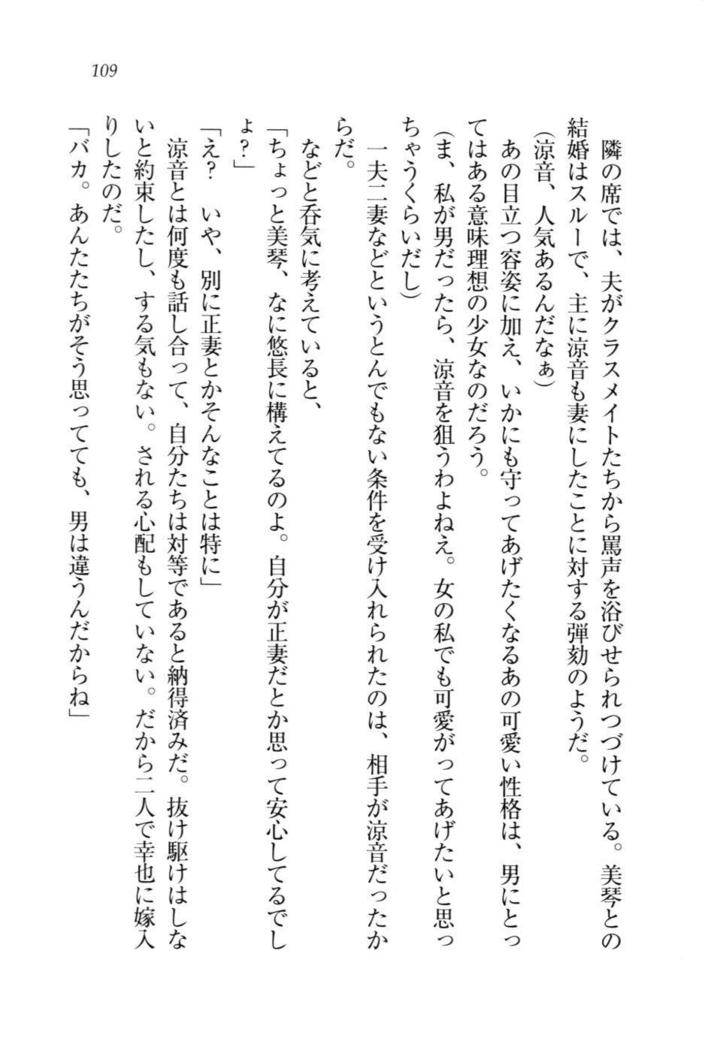 109
隣の席では、夫がクラスメイトたちから罵声を浴びせられつづけている。美琴との
結婚はスルーで、主に涼音も妻にしたことに対する弾劾のようだ。
(涼音、人気あるんだなぁ)
あの目立つ容姿に加え、いかにも守ってあげたくなるあの可愛い性格は、男にとっ
てはある意味理想の少女なのだろう。
(ま、私が男だったら、涼音を狙うわよねえ。女の私でも可愛がってあげたいと思っ
ちゃうくらいだし)
一夫二妻などというとんでもない条件を受け入れられたのは、相手が涼音だったか
らだ。
などと呑気に考えていると、
「ちょっと美琴、なに悠長に構えてるのよ。自分が正妻だとか思って安心してるでし
ょ?」
「え? いや、別に正妻とかそんなことは特に」
涼音とは何度も話し合って、自分たちは対等であると納得済みだ。抜け駆けはしな
いと約束したし、する気もない。される心配もしていない。だから二人で幸也に嫁入
りしたのだ。
「バカ。あんたたちがそう思ってても、男は違うんだからね」